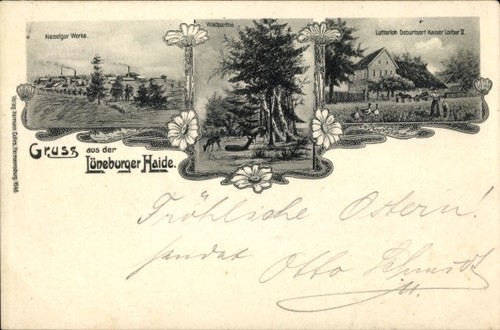 Kieselgur Werke.
Waldpartie.
Lutterloh Geburtsort Kaiser Lothar II.
Gruss aus der
Lüneburger Haide.
Fröhliche Ostern!
sendet Otto Schmidt